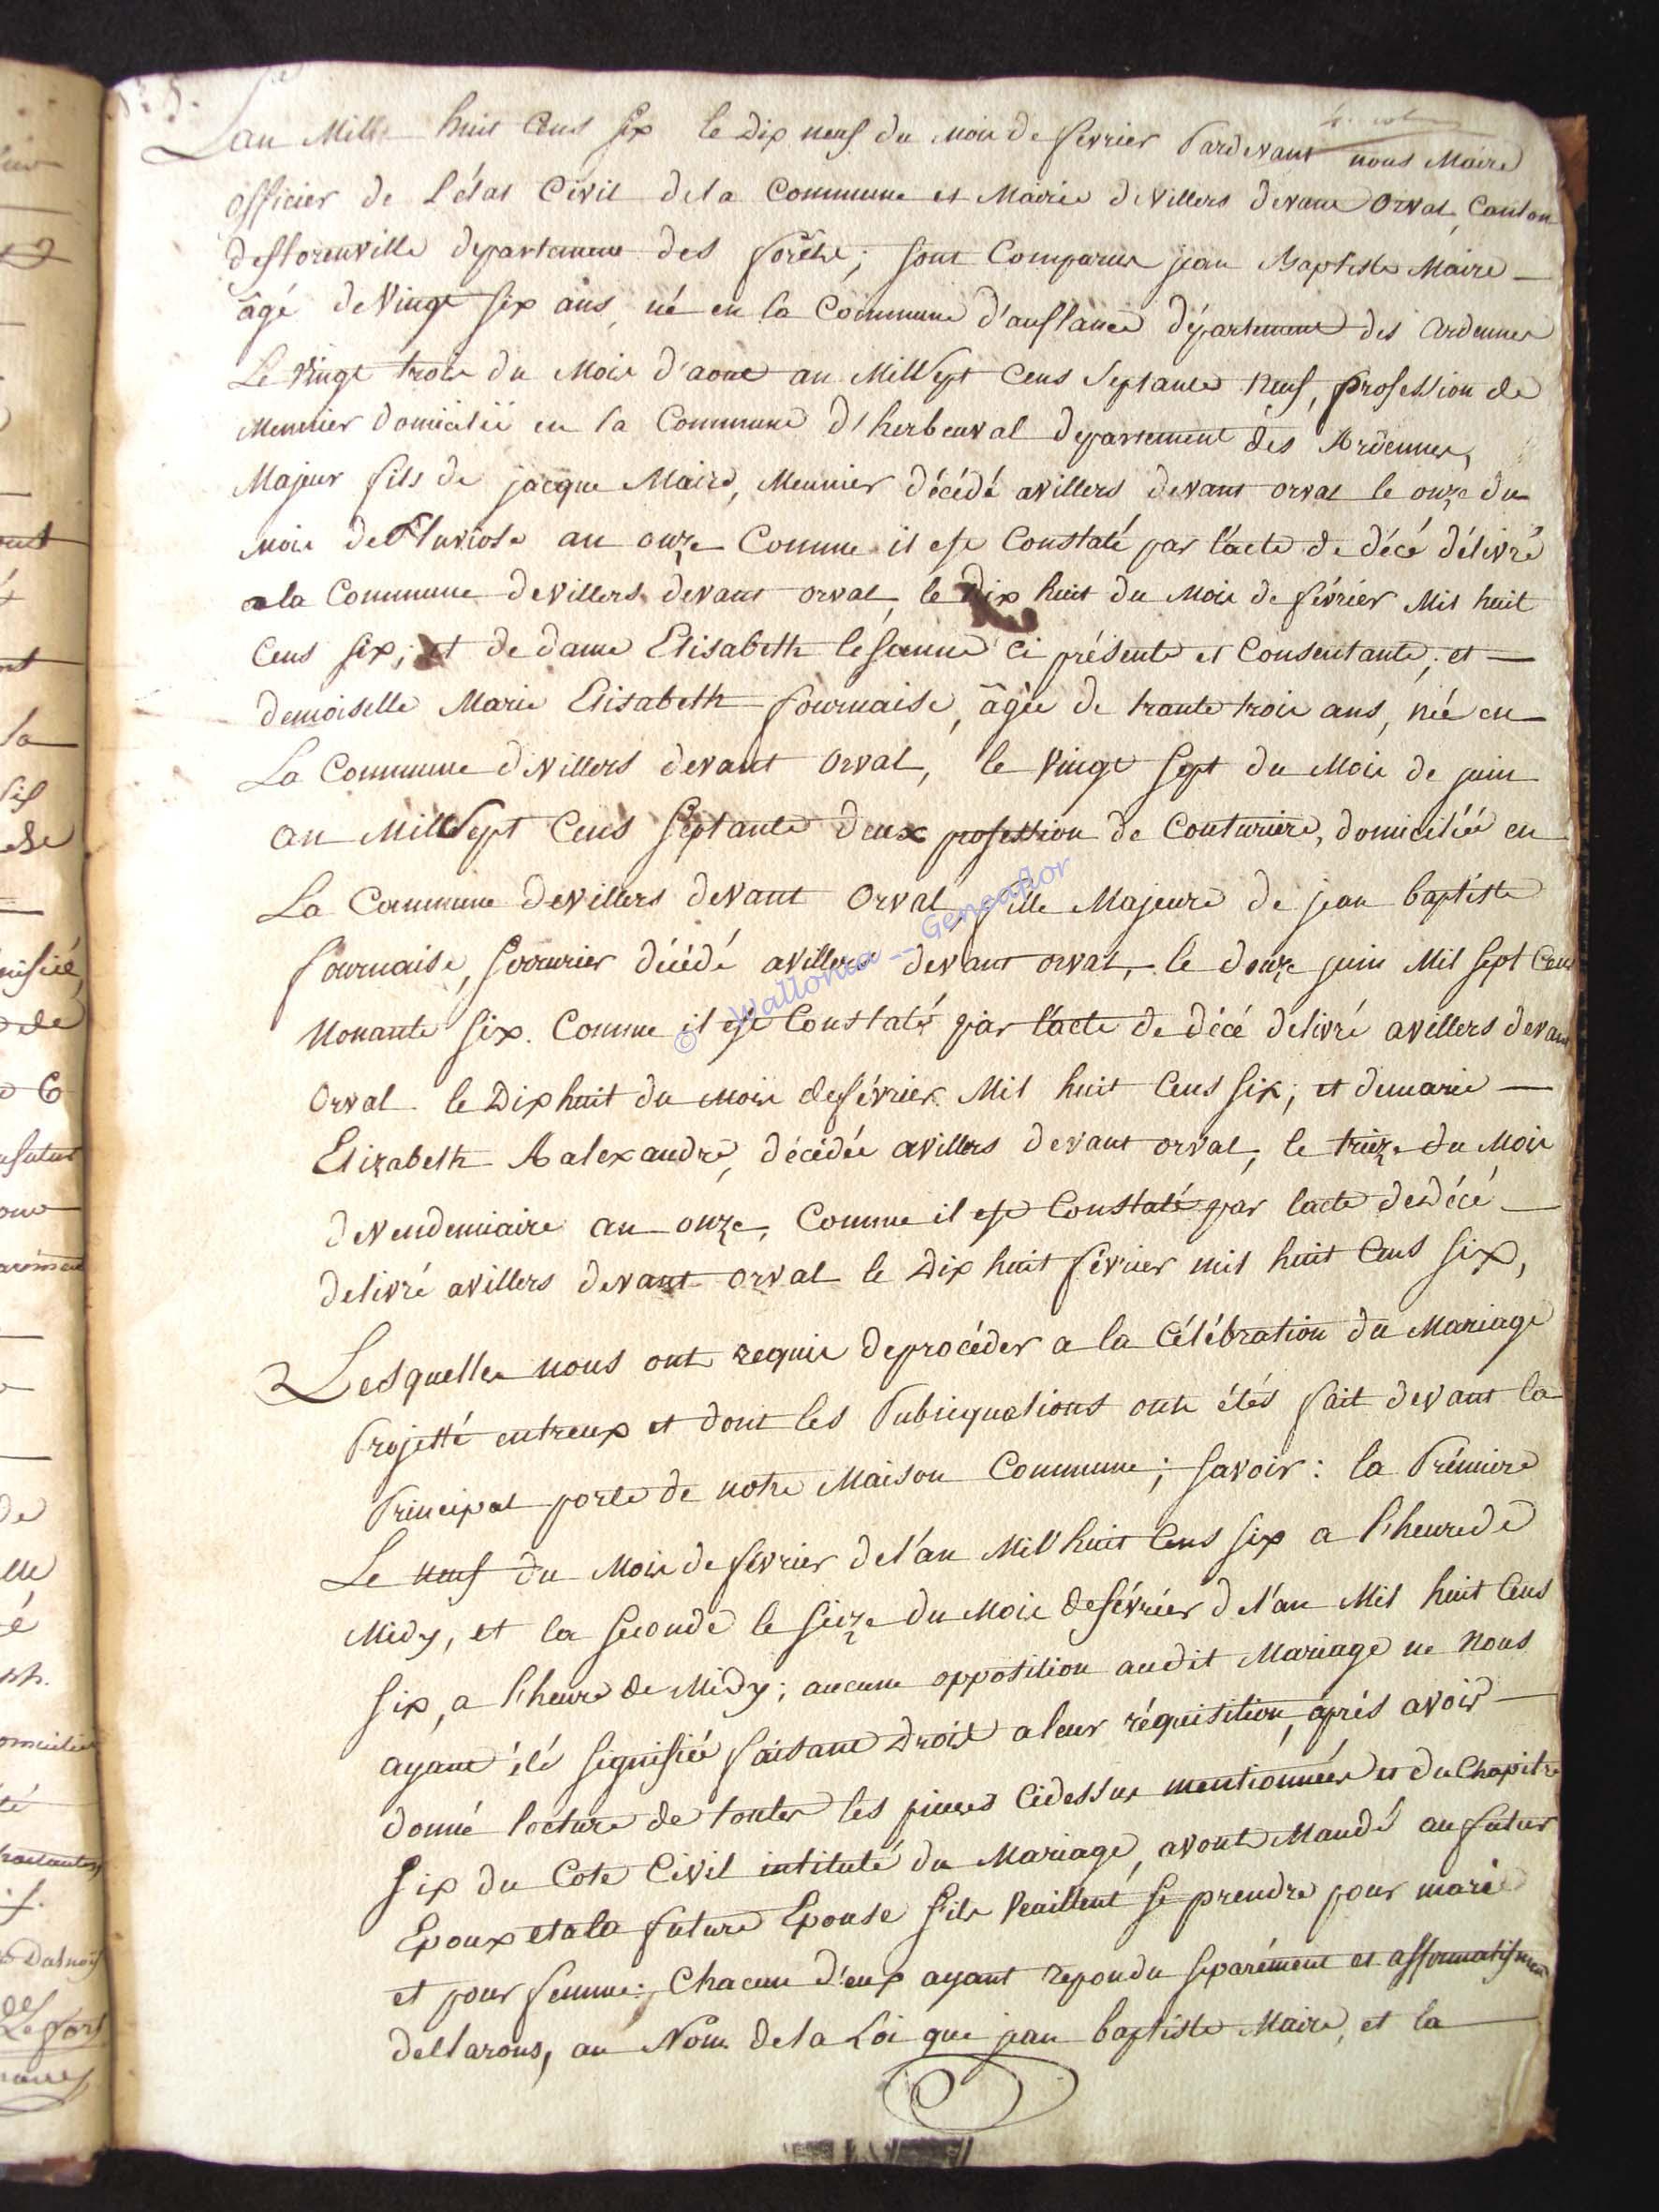 Lan Mille huit Cens Six le Dix neuf du mois de février Pardevant nous Maire
officier de L'état Civil dela Commune et Mairie deVillers devant Orval, Canton
deflorenville departement des forêts; sont Comparus jean Baptiste Maire
âgé deVingt six ans, né en la Commune d'auflance département des ardennes
Le Vingt trois du Mois d'aout an MilSept Cens Septante Neuf, profession de
Meunier domicilié en la Commune d'herbeuval departement des Ardennes,
Majeur fils de jacque Maire, Meunier décédé avillers devant orval le onze du
mois dePluviose an onze Comme il est Constaté par l'acte de décé délivré
a la Commune deVillers devant orval, le Dix huit du Mois de février Mil huit
Cens six; et de dame Elisabeth ci présente et Consentante; et
demoiselle Marie Elisabeth fournaise, âgée de trante trois ans, née en
La Commune deVillers devant Orval, le Vingt Sept du Mois de juin
an MilSept Cens Septante deux profession de Couturiere, domiciliée en
La Commune deVillers deVant Orval, fille Majeure de jean baptiste
fournaise, Serrurier décédé avillers devant orval, le douze juin Mil Sept Cens
Nonante Six. Comme il est Constaté par l'acte de décé délivré avillers devant
Orval le Dix huit du mois defévrier Mil huit Cens Six; et demarie
Elizabeth Aalexandre, décédée avillers devant orval, le treize du Mois
deVendemiaire an onze, Comme il est Constaté par lacte dedécé
delivré avillers devant orval le Dix huit février mil huit Cens Six,
Lesquelles nous ont requis deprocéder a la Célébration du Mariage
Projetté entreux et dont les Publiquations ont étés fait devant la
Principal porte de notre Maison Commune; Savoir: la Prémiere
Le neuf du Mois de février de l'an Mil huit Cens Six a l'heure de
Midy, et la Seconde le Seize du Mois defévrier de l'an Mil huit Cens
Six, a l'heure de Midy; aucune opposition audit Mariage ne Nous
ayant été Signifiée faisant Droit a leur réquisition, aprés avoir
donné lecture de toutes les pieces Cidessus mentionnées et du Chapitre
Six du Cote Civil intitulé du Mariage, avont Mandé au futur
Epoux et a la future Epouse S'ils Veuillent se prendre pour mari
et pour femme: Chacun d'eux ayant repondu separément et affirmatifment
dellarons, au Nom dela Loi que jean baptiste Maire, et la
© Wallonia -- Geneaflor